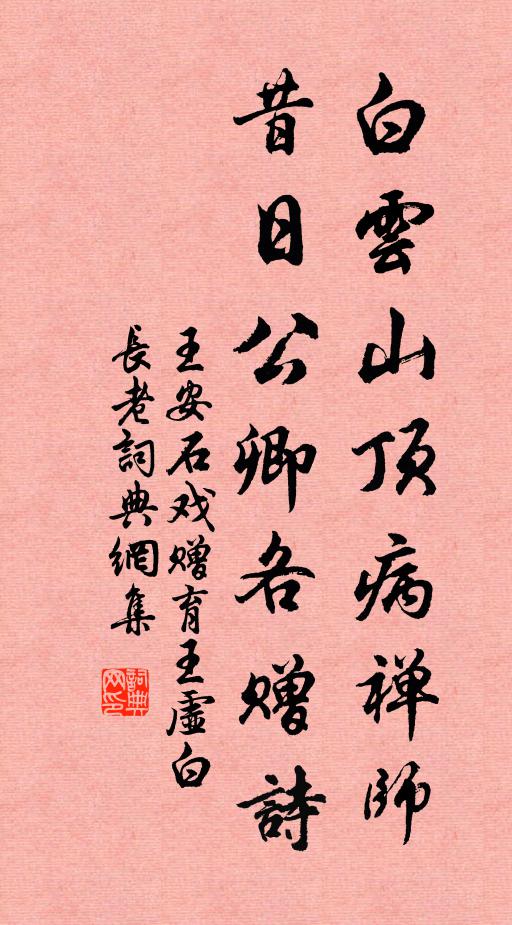 白雲山頂病禅师
昔日公卿各赠詩
王安石戏赠育王虚白
長老詞典網集
詞典网印